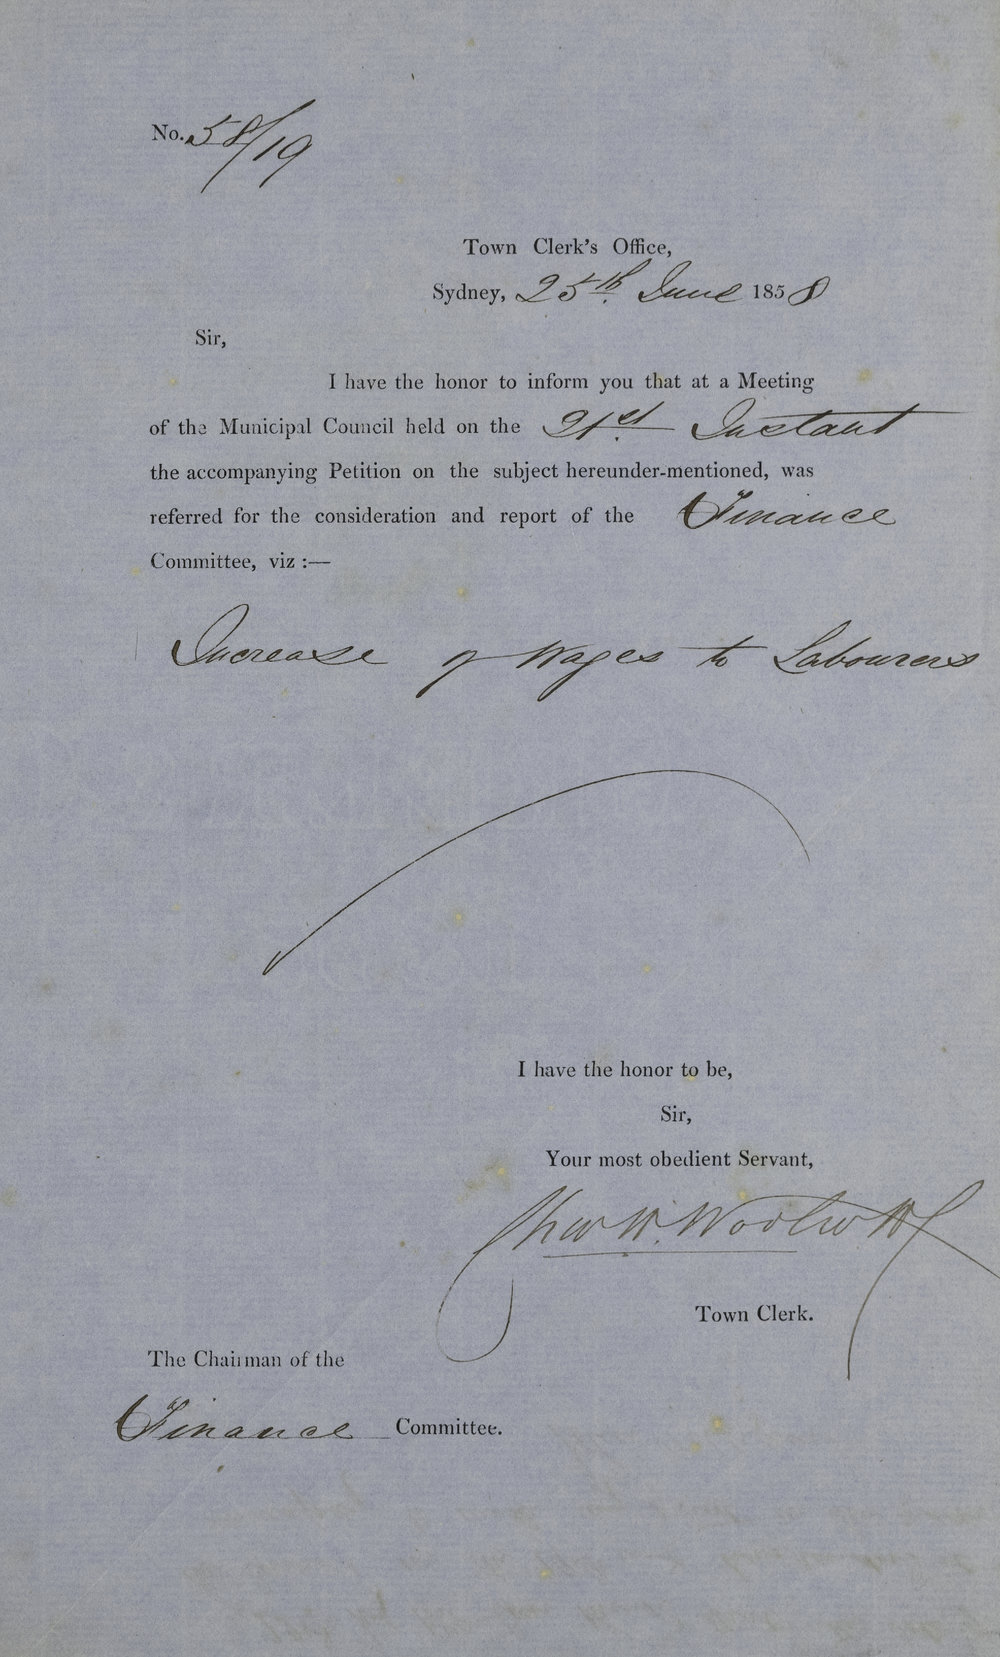 No. 58/19
Town Clerk's Office,
Sydney, 25th June 1858
Sir,
I have the honor to inform you that at a Meeting
of the Municipal Council held on the 21st Instant
the accompanying Petition on the subject hereunder-mentioned, was
referred for the consideration and report of the Finance
Committee, viz :—
Increase of Wages to Labourers
I have the honor to be,
Sir,
Your most obedient Servant,
Chas. H. Woolcott
Town Clerk.
The Chairman of the
Finance Committee.